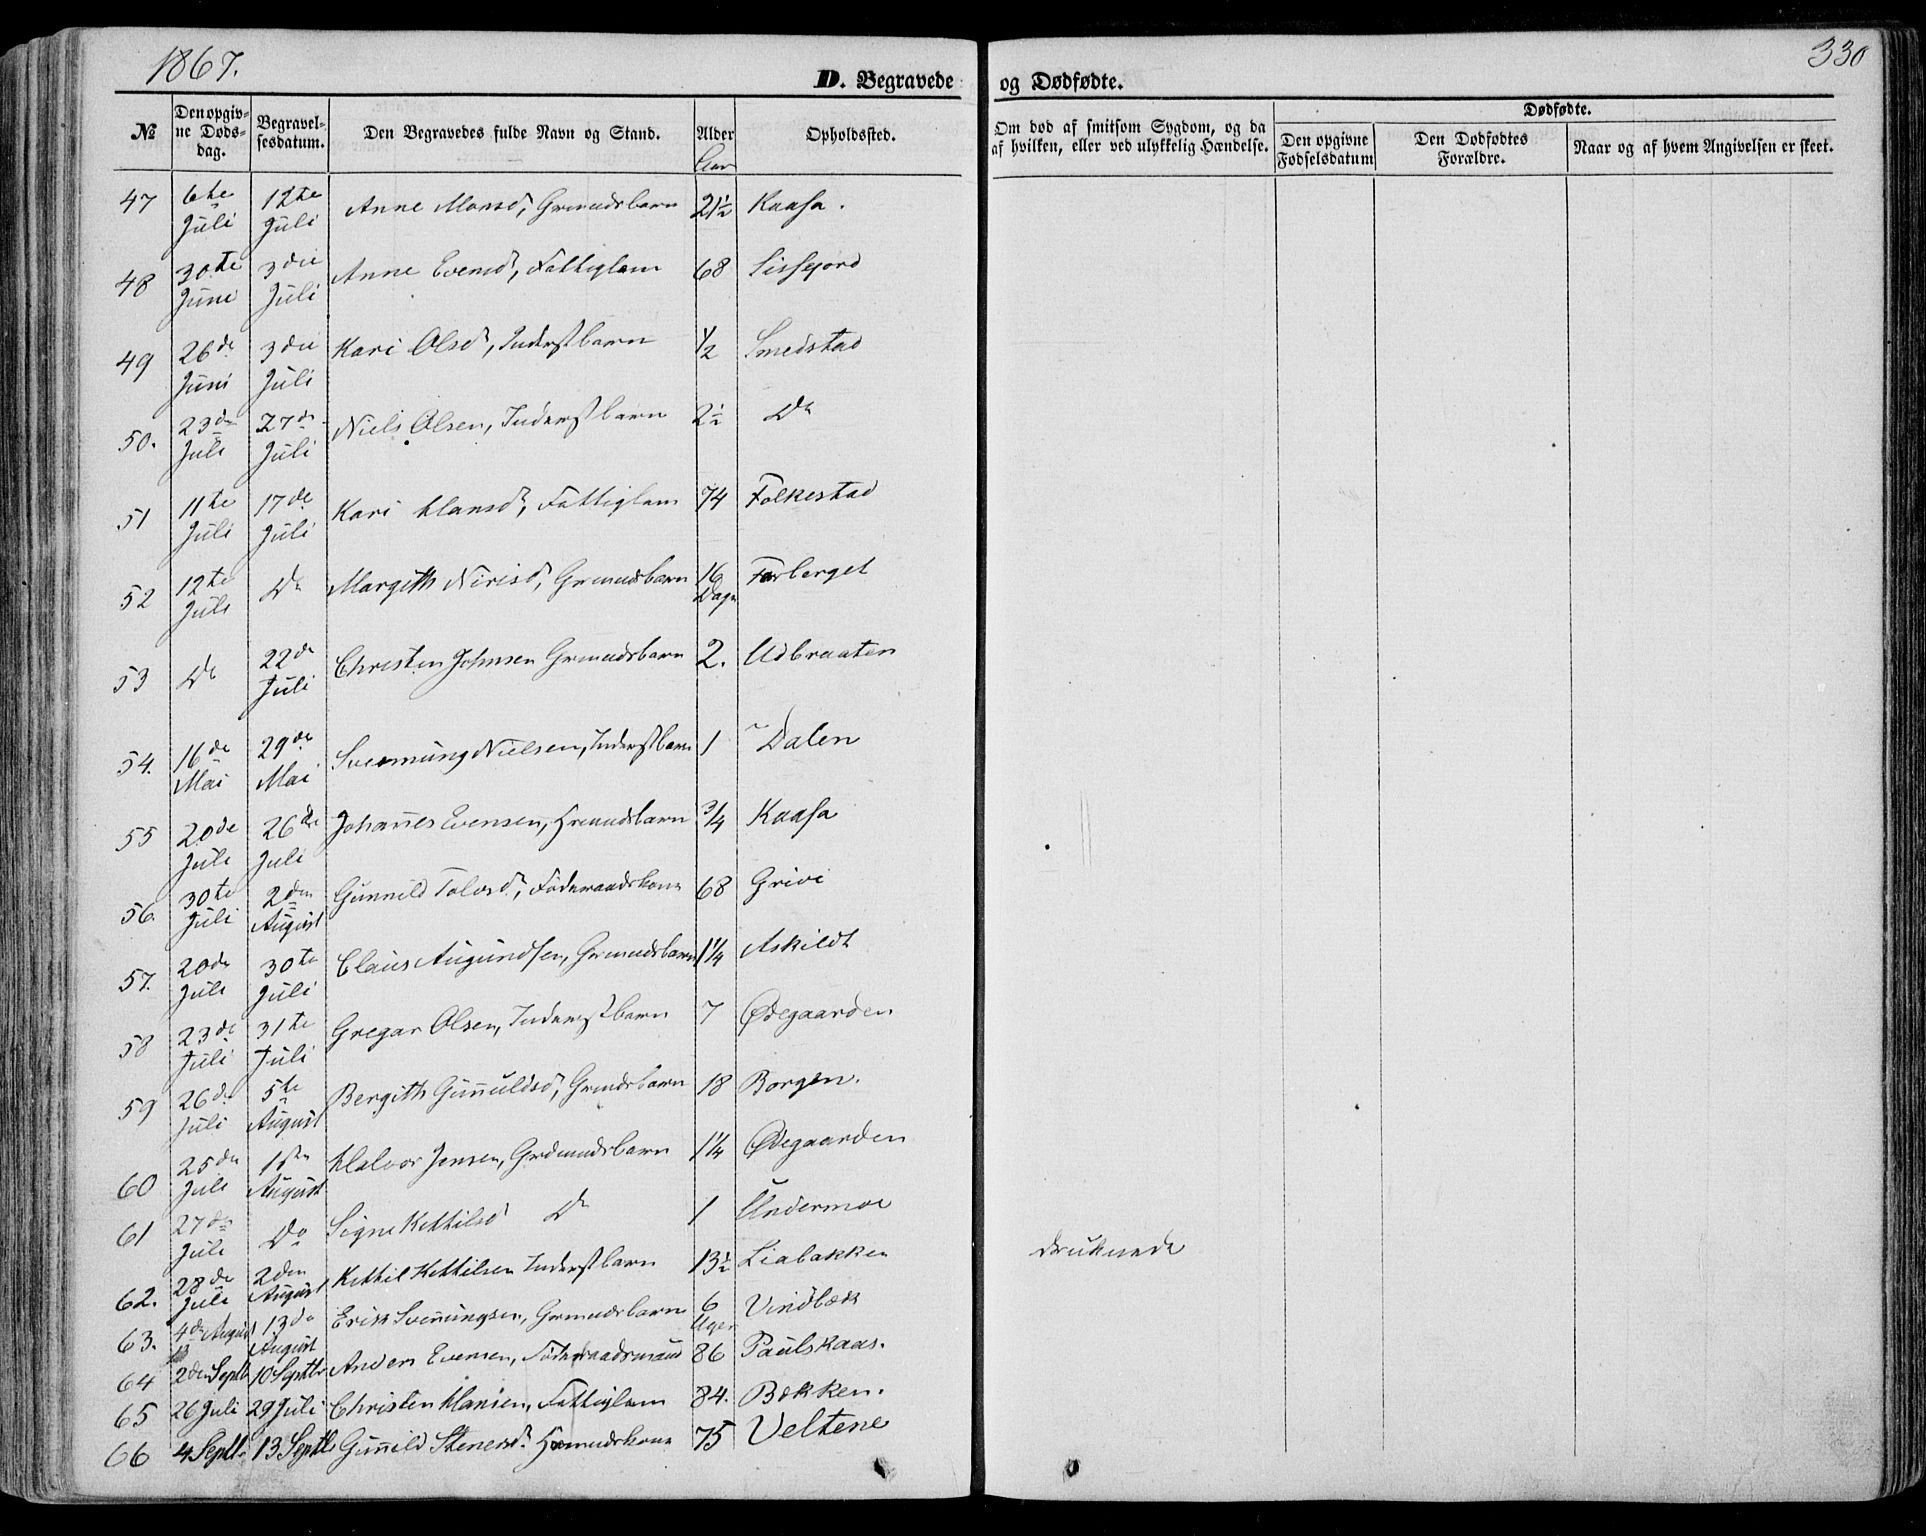 1867.
330
D. Begravede og Dødfødte.
№ Den opgivne Dødsdag. Begravelsesdatum. Den Begravedes fulde Navn og Stand. Alder Aar Opholdssted. Om død af smitsom Sygdom, og da af hvilken, eller ved ulykkelig Hændelse. Dødfødte. Den opgivne Fødselsdatum Den Dødfødtes Forældre. Naar og af hvem Angivelsen er skeet.
47 6te Juli 12te Juli Anne Monsd, Grmandsbarn 2½ Kaasa.
48 30te Juni 3die Juli Anne Evensd, Fattiglem 68 Sisfjord
49 26de Juni 3die Juli Kari Olsd, Inderstbarn ½ Smedstad
50. 23de Juli 27de Juli Niels Olsen, Inderstbarn 2½ Do
51 11te Juli 17de Juli Kari Hansd, Fattiglem 74 Folkestad
52 12te Juli Do Margith Nirisd, Grmandsbarn 16 Dage Farberget
53 Do 22de Juli Christen Johnsen Grmandsbarn 2. Udbraaten
54. 16de Mai 29de Mai Svenmung Nielsen, Inderstbarn 1 Dalen
55 20de Juli 26de Juli Johannes Evensen, Hsmandsbarn ¾ Kaasa
56. 30te Juli 2den August Gunnild Tolvsd, Føderaadskone 68 Grivi
57. 20de Juli 30te Juli Claus Augundsen, Grmandsbarn 1¼ Askildt
58 23de Juli 31te Juli Gregar Olsen, Inderstbarn 7 Ødegaarden
59 26de Juli 5te August Bergith Gunnuldsd, Grmdsbarn 18 Borgen.
60 25de Juli 1ste August Halvor Jensen, Grdmandsbarn 1¼ Ødegaarden
61 27de Juli Do Signe Kettilsd Do 1 Undermoe
62. 28de Juli 2den August Kettil Kettilsen Inderstbarn 13½ Liabakken druknede
63. 4de August 13de August Erik Svenungsen, Grmandsbarn 6 Uger Vindbæk
64 2den Septb 10 Septbr Anders Evensen, Føderaadsmand 86 Paulskaas.
65 26 Juli 29 Juli Christen Hansen, Fattiglem 84. Bækken.
66 4 Septb 13 Septb Gunnild Stenersd. Hsmandskone 75 Veltene